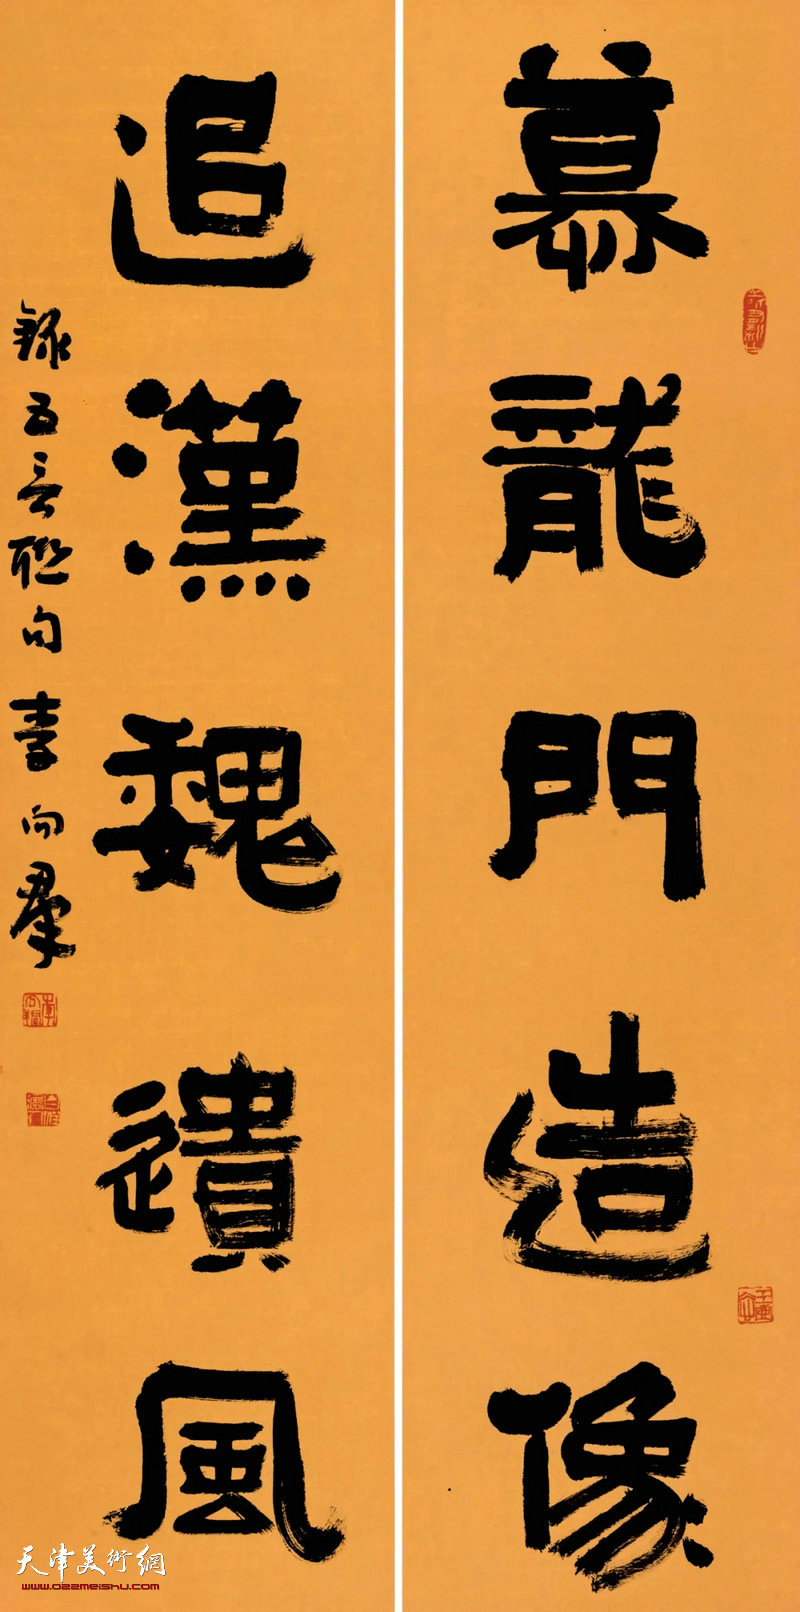 慕龍門造像
追漢魏遺風
錄五言聯句 李向群
天津美術網
www.022meishu.com